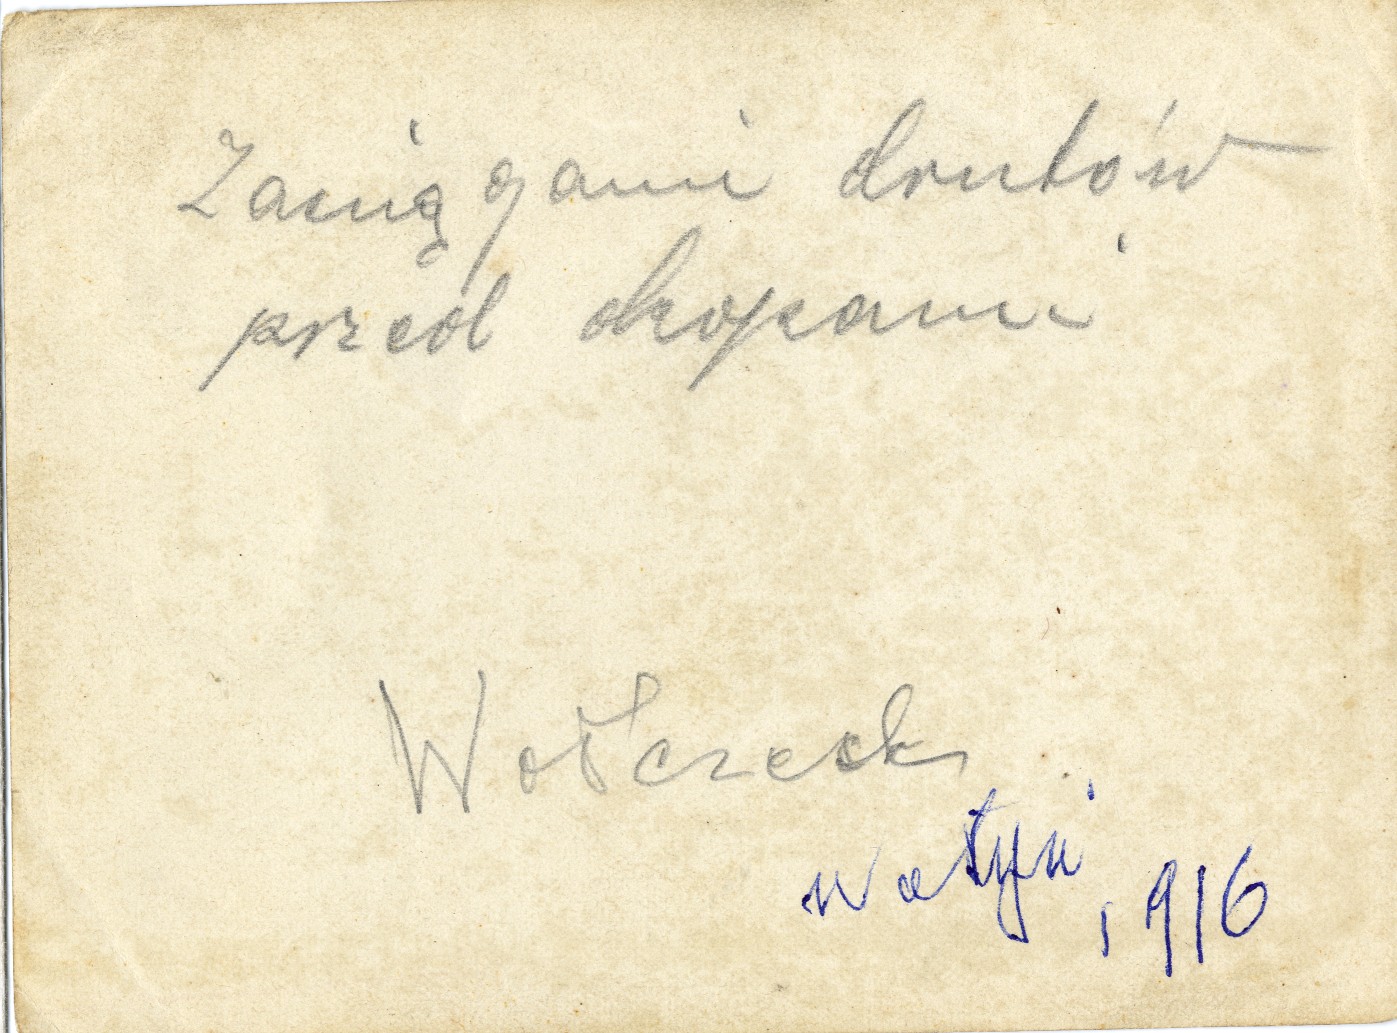 Zaciągani drutów
przed okopami
Wołczeck
Wołyń
1916